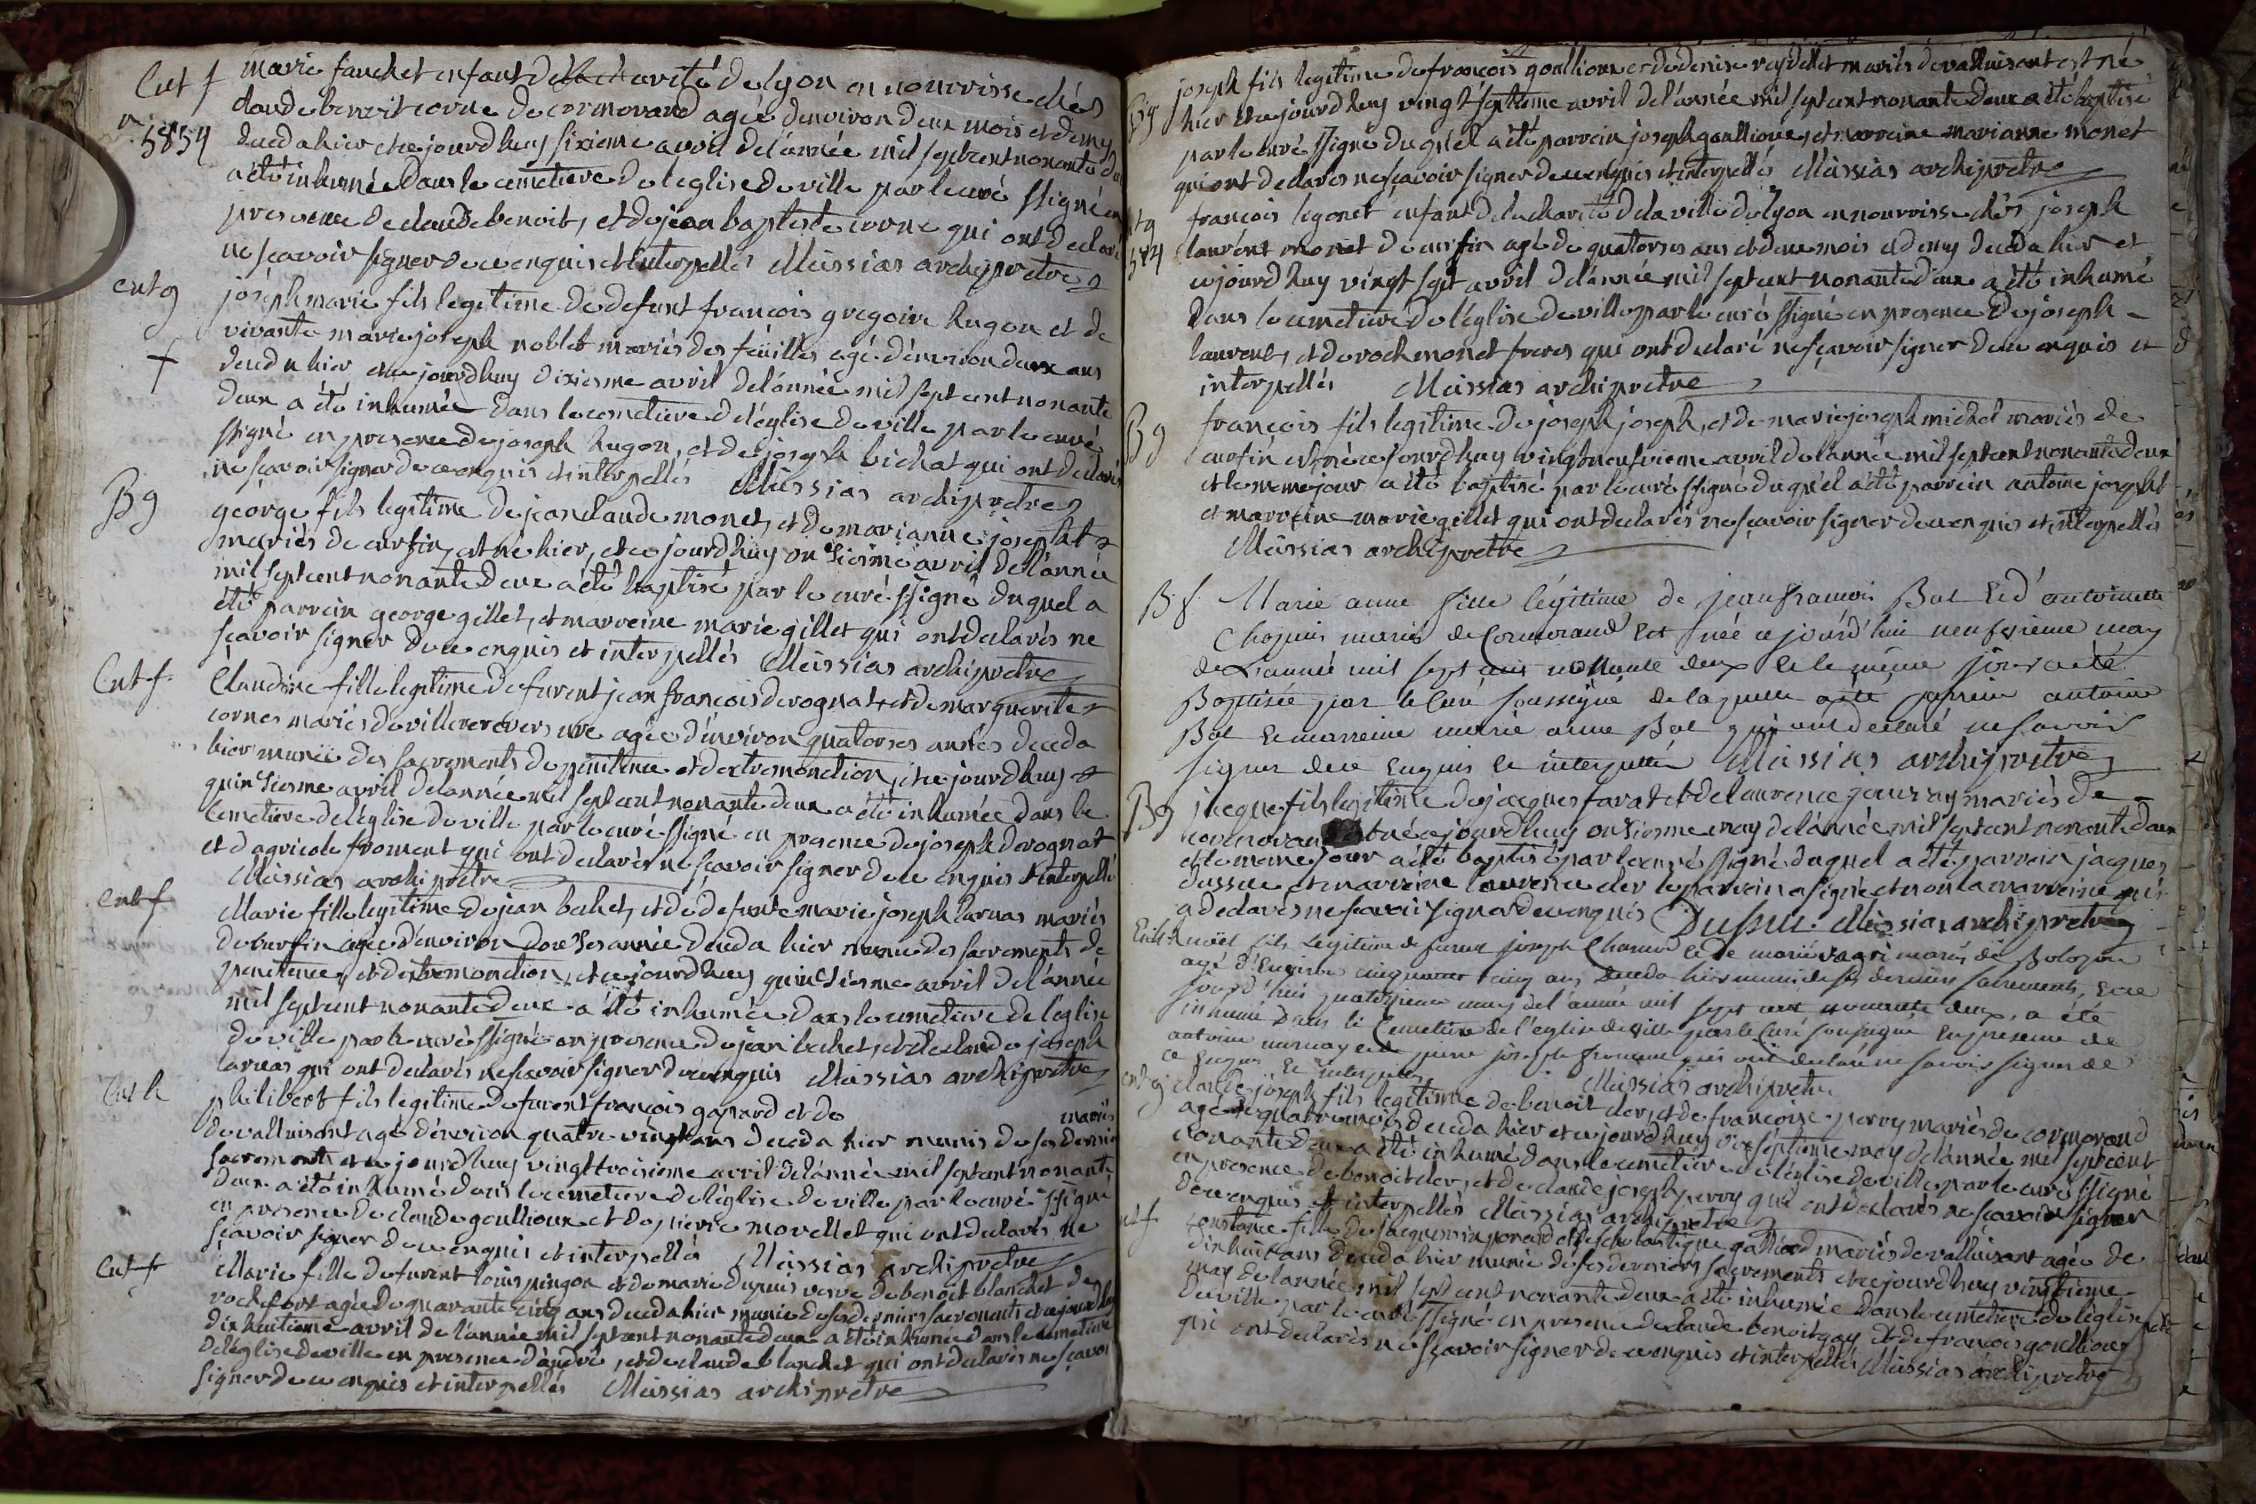 Ent f
n° 5834
marie fauchet enfant de la charité de lyon en nourrisse chés
claude benoit corne de cormorand agée d'environ deux mois et demy
deceda hier et ce jourdhuy sixieme avril de l'année mil sept cent nonante deux
a été inhumée dans le cemetiere de l'eglise de ville par le curé ssigné en
presence de claude benoit, et de jean baptiste corne qui ont declaré
ne sçavoir signer de ce enquis et interpellés Messias archipretre
ent g
joseph marie fils legitime de defunt françois gregoire hugon et de
vivante marie joseph noblet mariés des feüilles agé d'environ deux ans
deceda hier et ce jourdhuy dixiesme avril de l'année mil sept cent nonante
deux a été inhumée dans le cemetiere de l'église de ville par le curé
ssigné en presence de joseph hugon, et de joseph bichat qui ont declarés
ne sçavoir signer de ce enquis et interpellés Messias archipretre
B g
george fils legitime de jean claude monet, et de marianne josepht
mariés de curfin, est né hier, et ce jourdhuy onziesme avril de l'année
mil sept cent nonante deux a été baptisé par le curé ssigné duquel a
été parrein george gillet, et marreine marie gillet qui ont declarés ne
sçavoir signer de ce enquis et interpellés Messias archipretre
Ent f
Claudine fille legitime de furent jean françois derognat, et de marguerite
cornes mariés de villereversure agée d'environ quatorses années deceda
hier munie des sacrements de penitence et d'extremonction, et ce jourdhuy
quinziesme avril de l'année mil sept cent nonante deux a été inhumée dans le
cemetiere de l'église de ville par le curé ssigné en presence de joseph derognat
et d'agricole froment qui ont declarés ne sçavoir signer de ce enquis et interpellé
Messias archipretre
ent f
Marie fille legitime de jean bechet, et de defunte marie joseph laruas mariés
de curfin agée d'environ douzes année deceda hier munie des sacrements de
penitence, et d'extremonction, et ce jourdhuy quinziesme avril de l'année
mil sept cent nonante deux a été inhumée dans le cemetiere de l'église
de ville par le curé ssigné en presence de jean bechet, et de claude joseph
laruas qui ont declarés ne sçavoir signer de ce enquis Messias archipretre
philibert fils legitime de furent françois gayard et de mariés
de valluisant agé d'environ quatre vingt ans deceda hier munis de ses derniers
sacrements et ce jourdhuy vingt troisieme avril de l'année mil sept cent nonante
deux a été inhumé dans le cemetiere de l'église de ville par le curé ssigné
en presence de claude goullioux et de pierre morellet qui ont declarés ne
sçavoir signer de ce enquis et interpellés Messias archipretre
Ent f
Marie fille de furent louis pingon et de marie dupuis veuve de benoit blanchet de
rochefort agée de quarante cinq ans deceda hier munie de ses derniers sacrements et ce jourdhuy
dixhuitieme avril de l'année mil sept cent nonante deux a été inhumée dans le cemetiere
de l'église de ville en presence d'andré, et de claude blanchet qui ont declarés ne sçavoir
signer de ce enquis et interpellés Messias archipretre
B g
joseph fils legitime de françois goullioux et de denise reydellet mariés de valluisant est né
hier et ce jourdhuy vingt septieme avril de l'année mil sept cent nonante deux a été baptisé
par le curé ssigné duquel a été parrein joseph goullioux, et marreine marianne monet
qui ont declarés ne sçavoir signer de ce enquis et interpellés Messias archipretre
françois legonet enfant de la charité de la ville de lyon en nourrisse chés joseph
laurent monet de curfin agé de quatorses ans et deux mois et demy deceda hier et
ce jourdhuy vingt sept avril de l'année mil sept cent nonante deux a été inhumé
dans le cemetiere de l'église de ville par le curé ssigné en presence de joseph
laurent, et de roch monet freres qui ont declaré ne sçavoir signer de ce enquis et
interpellés Messias archipretre
B g
françois fils legitime de joseph joseph, et de marie joseph michel mariés de
curfin est né ce jourdhuy vingt neufvieme avril de l'année mil sept cent nonante deux
et le meme jour a été baptisé par le curé ssigné duquel a été parrein antoine josepht
et marreine marie gillet qui ont declarés ne sçavoir signer de ce enquis et interpellés
Messias archipretre
B f
Marie anne fille légitime de jean francois Bal et d'antoinette
Chapuis mariés de Cormorand est née ce jourd'hui neufvieme may
de L'année mil sept cent nonante deux et le même jour a été
Baptisée par le Curé soussigné de laquelle a été parrein antoine
Bal et marreine marie anne Bal qui ont declaré ne savoir
signer de ce enquis et interpellés Messias archipretre
B g
jacque fils legitime de jacques farat et de laurence jeauray mariés de
cormoran est né ce jourdhuy onziesme may de l'année mil sept cent nonante deux
et le meme jour a été baptisé par le curé ssigné duquel a été parrein jacques
dussuc et marreine laurence cler le parrein a signé et non la marreine qui
a declarés ne sçavoir signer de ce enquis Dussuc Messias archipretre
noël fils legitime de furent joseph Chanard et de marie vagri mariés de Bologne
agé d'Environ cinquante cinq ans deceda hier muni de ses derniers sacrements, et ce
jourd'hui quatorzieme may de l'année mil sept cent nonante deux, a été
inhumé dans le Cemetiere de l'eglise de ville par le Curé soussigné En presence de
antoine et de pierre joseph froment qui ont declaré ne savoir signer de
ce Enquis Et interpellés Messias archipretre
ent g
claude joseph fils legitime de benoit cler, et de françoise perry mariés de cormorand
agé de quatre mois deceda hier et ce jourdhuy dix septieme may de l'année mil sept cent
nonante deux a été inhumé dans le cemetiere de l'église de ville par le curé ssigné
en presence de benoit cler, et de claude joseph perry qui ont declarés ne sçavoir signer
de ce enquis et interpellés Messias archipretre
constance fille de jacquemin ponard et de scholastique galliard mariés de valluisant agée de
dixhuit ans deceda hier munie de ses derniers sacrements et ce jourdhuy vingtieme
may de l'année mil sept cent nonante deux a été inhumée dans le cemetiere de l'église
de ville par le curé ssigné en presence de claude benoit gay et de françois goullioux
qui ont declarés ne sçavoir signer de ce enquis et interpellés Messias archipretre